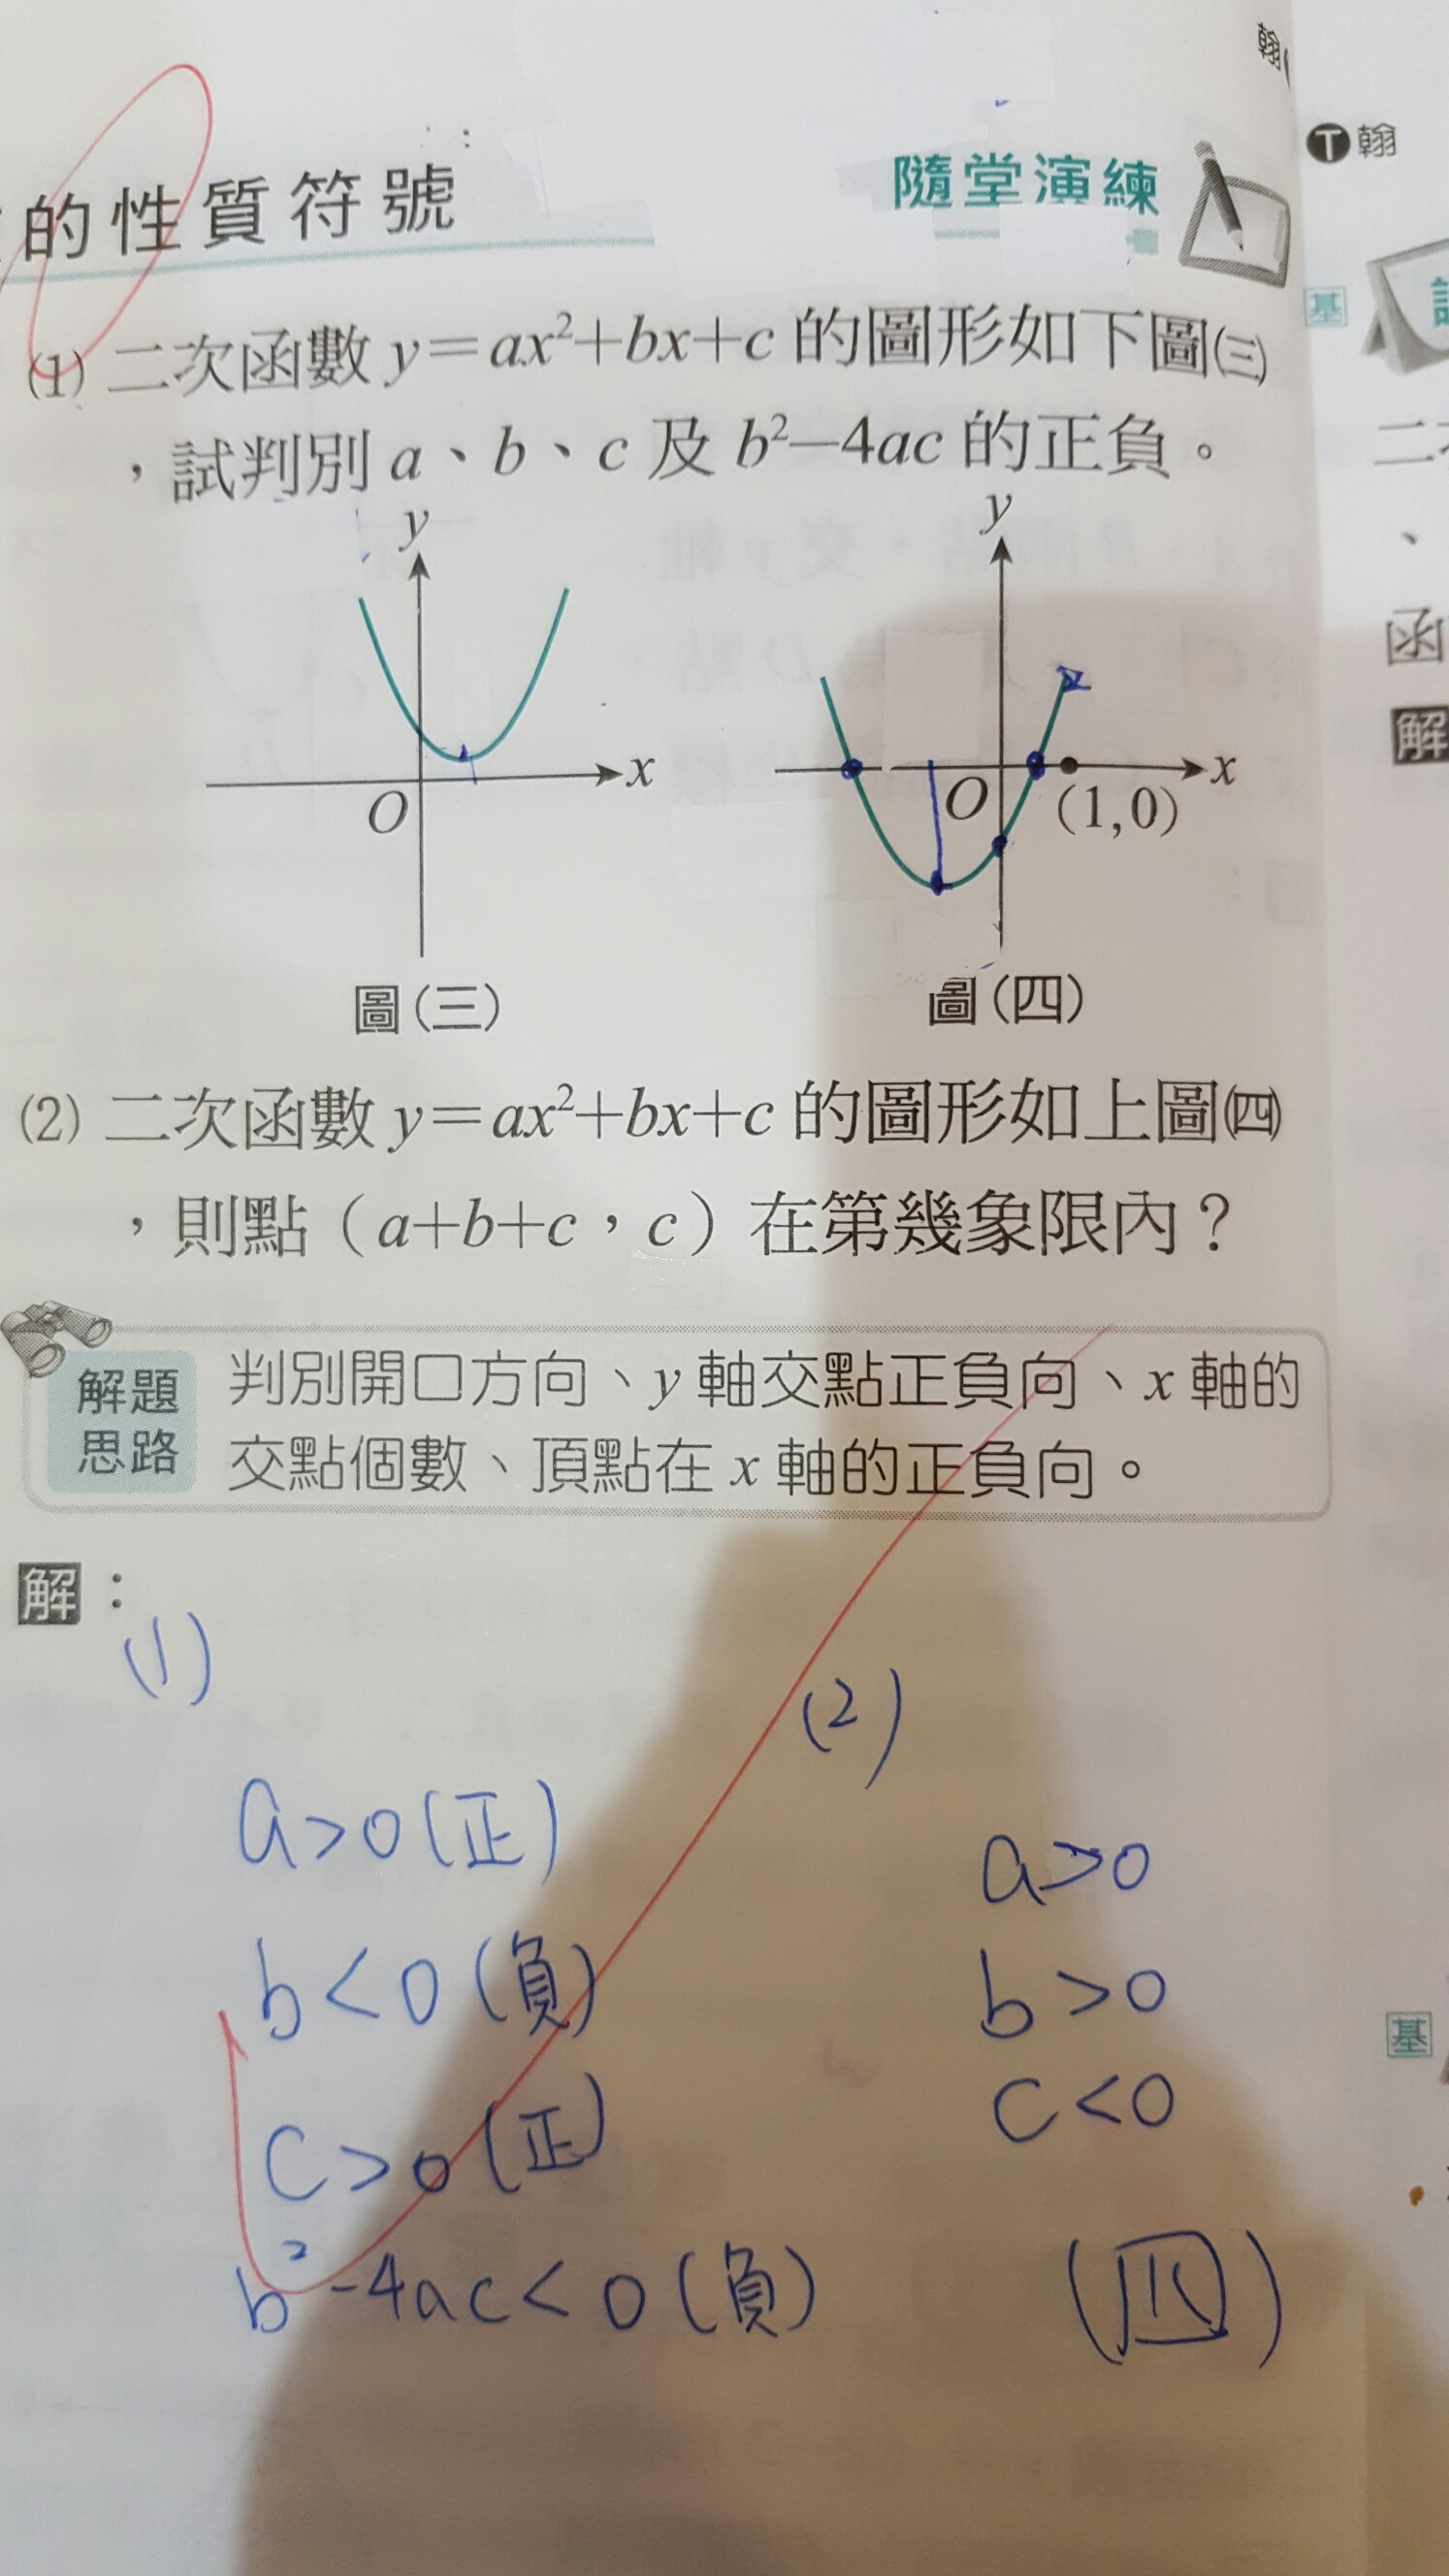 翰
T 翰
的性質符號
隨堂演練
基
(1) 二次函數 y=ax²+bx+c 的圖形如下圖㈢
,試判別 a、b、c 及 b²−4ac 的正負。
y
x
O
圖(三)
y
x
O
(1,0)
圖(四)
(2) 二次函數 y=ax²+bx+c 的圖形如上圖㈣
,則點(a+b+c,c)在第幾象限內?
解題
思路
判別開口方向、y 軸交點正負向、x 軸的
交點個數、頂點在 x 軸的正負向。
解:
(1)
a>0(正)
b<0(負)
c>0(正)
b²-4ac<0(負)
(2)
a>0
b>0
c<0
(四)
二
、
函
解
基